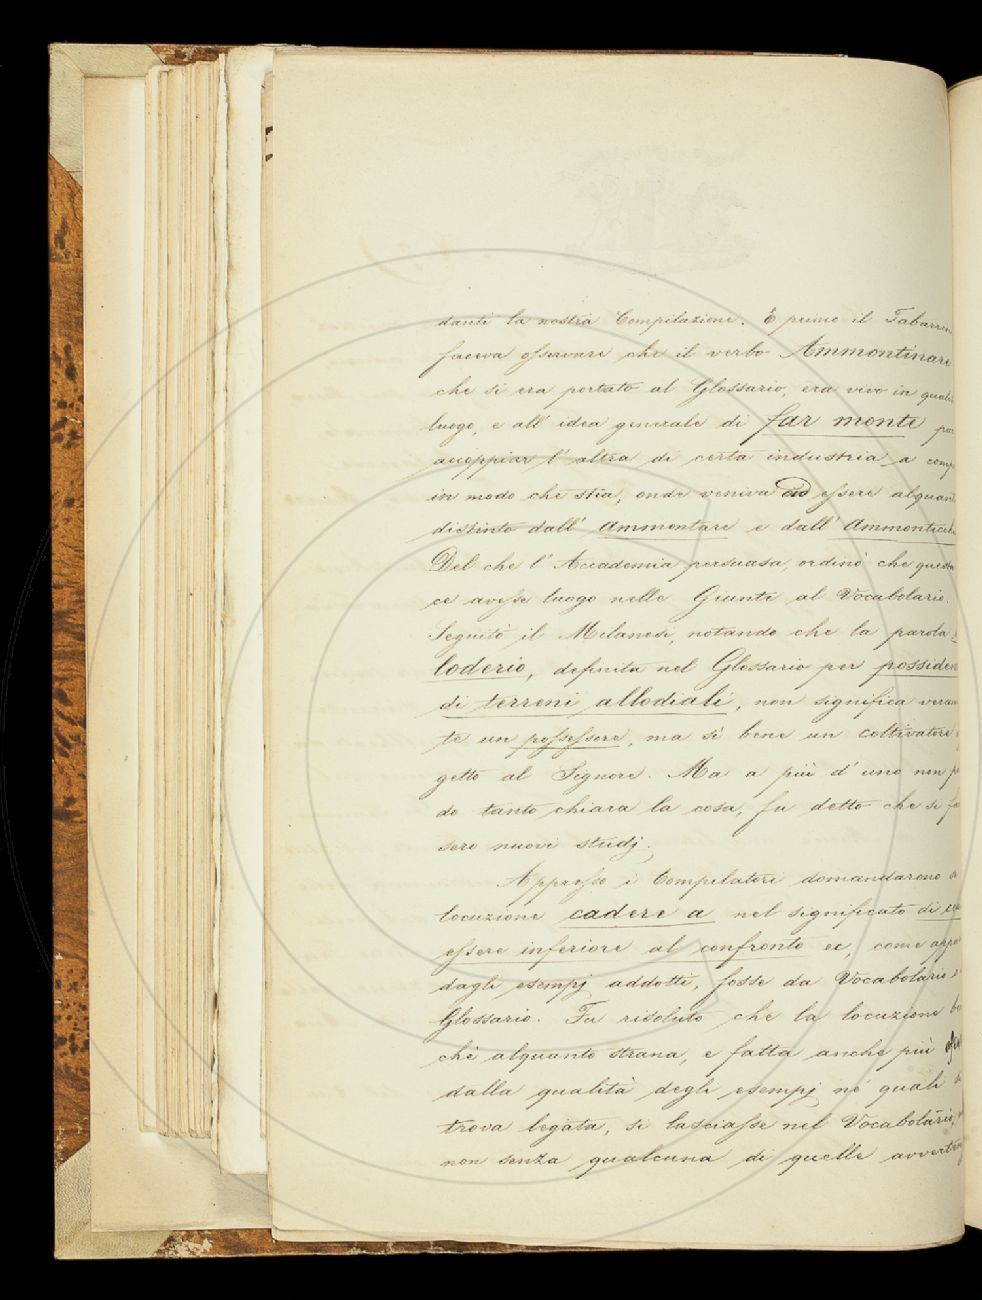 danti la nostra Compilazione. E primo il Tabarrin
faceva osservare che il verbo Ammontinare
che si era portato al Glossario, era vivo in qualc
luogo, e all' idea generale di far monte par
accoppiar l' altra di certa industria a comp
in modo che stia, onde veniva ad essere alquant
distinto dall' Ammontare e dall' Ammonticch
Del che l' Accademia persuasa, ordinò che questa
ce avesse luogo nelle Giunte al Vocabolario.
Seguitò il Milanesi, notando che la parola
loderio, definita nel Glossario per possiden
di terreni allodiali, non significa veram
te un possessore, ma sì bene un coltivatore
getto al Signore. Ma a più d' uno non pa
do tanto chiara la cosa, fu detto che si fa
sero nuovi studj.
Appresso i Compilatori domandarono
locuzione cadere a nel significato di
essere inferiore al confronto ec, come appa
dagli esempj addotti, fosse da Vocabolario
Glossario. Fu risoluto che la locuzione be
chè alquanto strana, e fatta anche più
dalla qualità degli esempj nè quali
trova legata, si lasciasse nel Vocabolario,
non senza qualcuna di quelle avverten